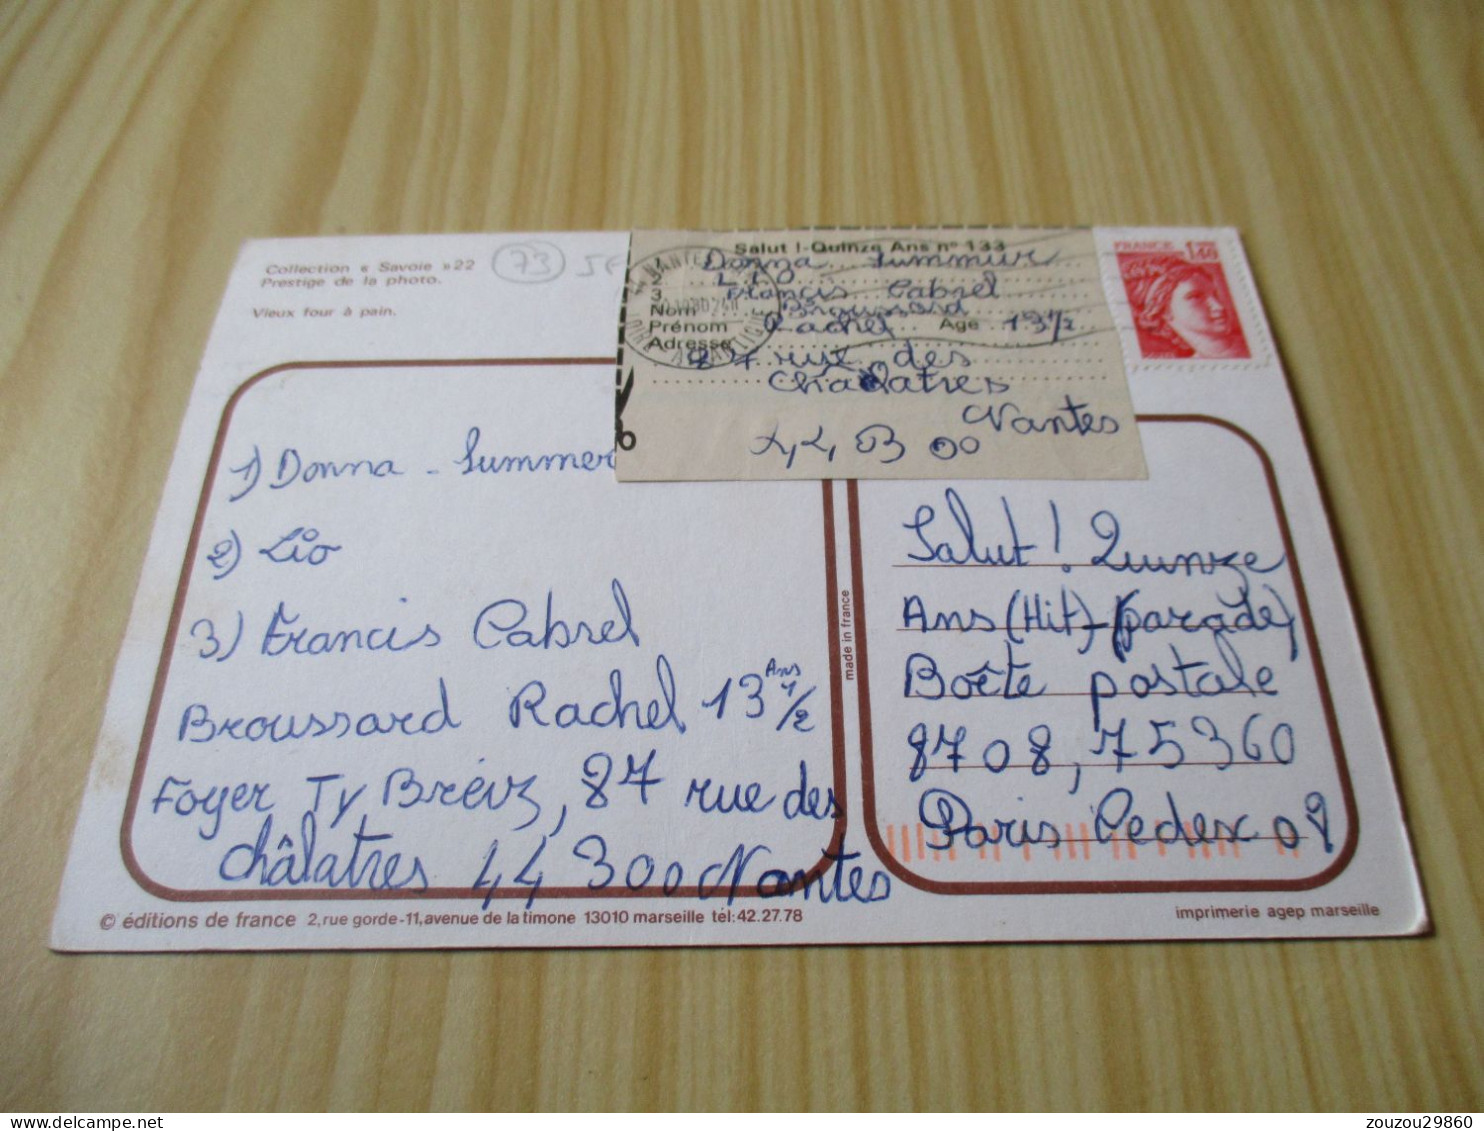 Collection « Savoie » 22
Prestige de la photo.
Vieux four à pain.
73
Salut !-Quinze Ans n° 133
1 Donna Summeur
2 LIO
3 Francis Cabrel
Nom Broussard
Prénom Rachel Age 13 1/2
Adresse 87 rue des
Châlatres
Nantes
44 B 00
FRANCE 1,40
1) Donna - Summer
2) Lio
3) Francis Cabrel
Broussard Rachel 13 Ans 1/2
Foyer Ty Breiz, 87 rue des
châlatres 44 300 Nantes
made in france
Salut ! Quinze
Ans (Hit)-(parade)
Boête postale
8708, 75360
Paris Cedex 08
© éditions de france 2, rue gorde-11, avenue de la timone 13010 marseille tél: 42.27.78
imprimerie agep marseille
zouzou29860